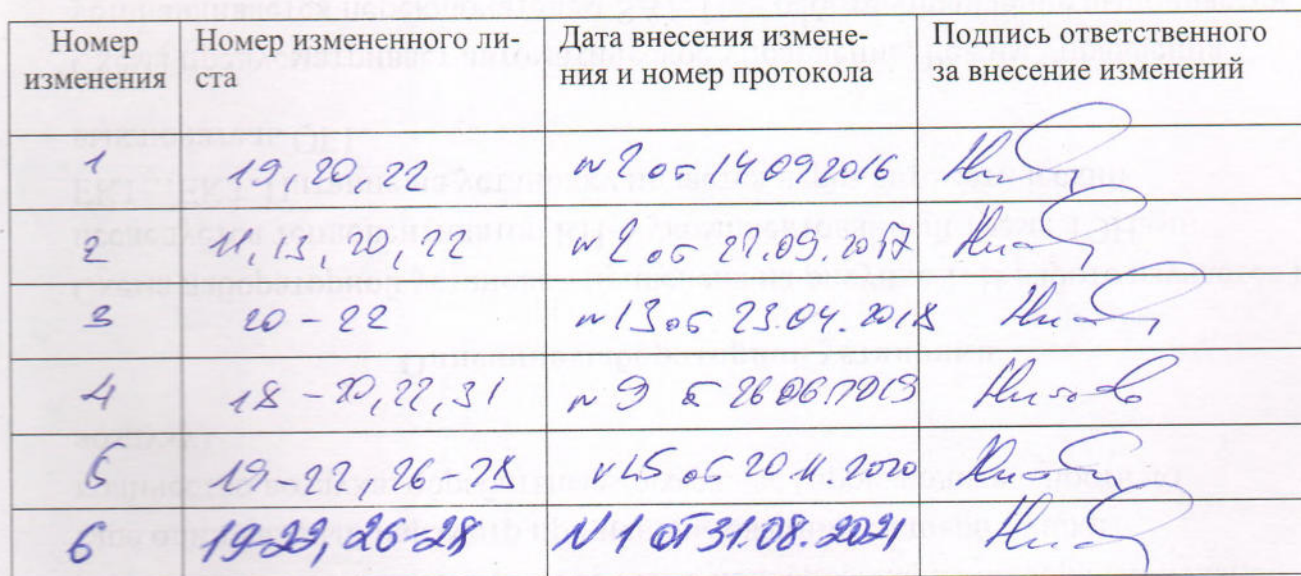 Номер изменения
Номер измененного ли-
ста
Дата внесения измене-
ния и номер протокола
Подпись ответственного
за внесение изменений
1 19, 20, 22 №2 от 14092016
2 11, 13, 20, 22 №2 от 27.09.2017
3 20-22 №13 от 23.04.2018
4 18-20, 22, 31 №9 от 26062019
19-22, 26-28 №5 от 20 11 2020
6 19-22, 26-28 N1 от 31.08.2021